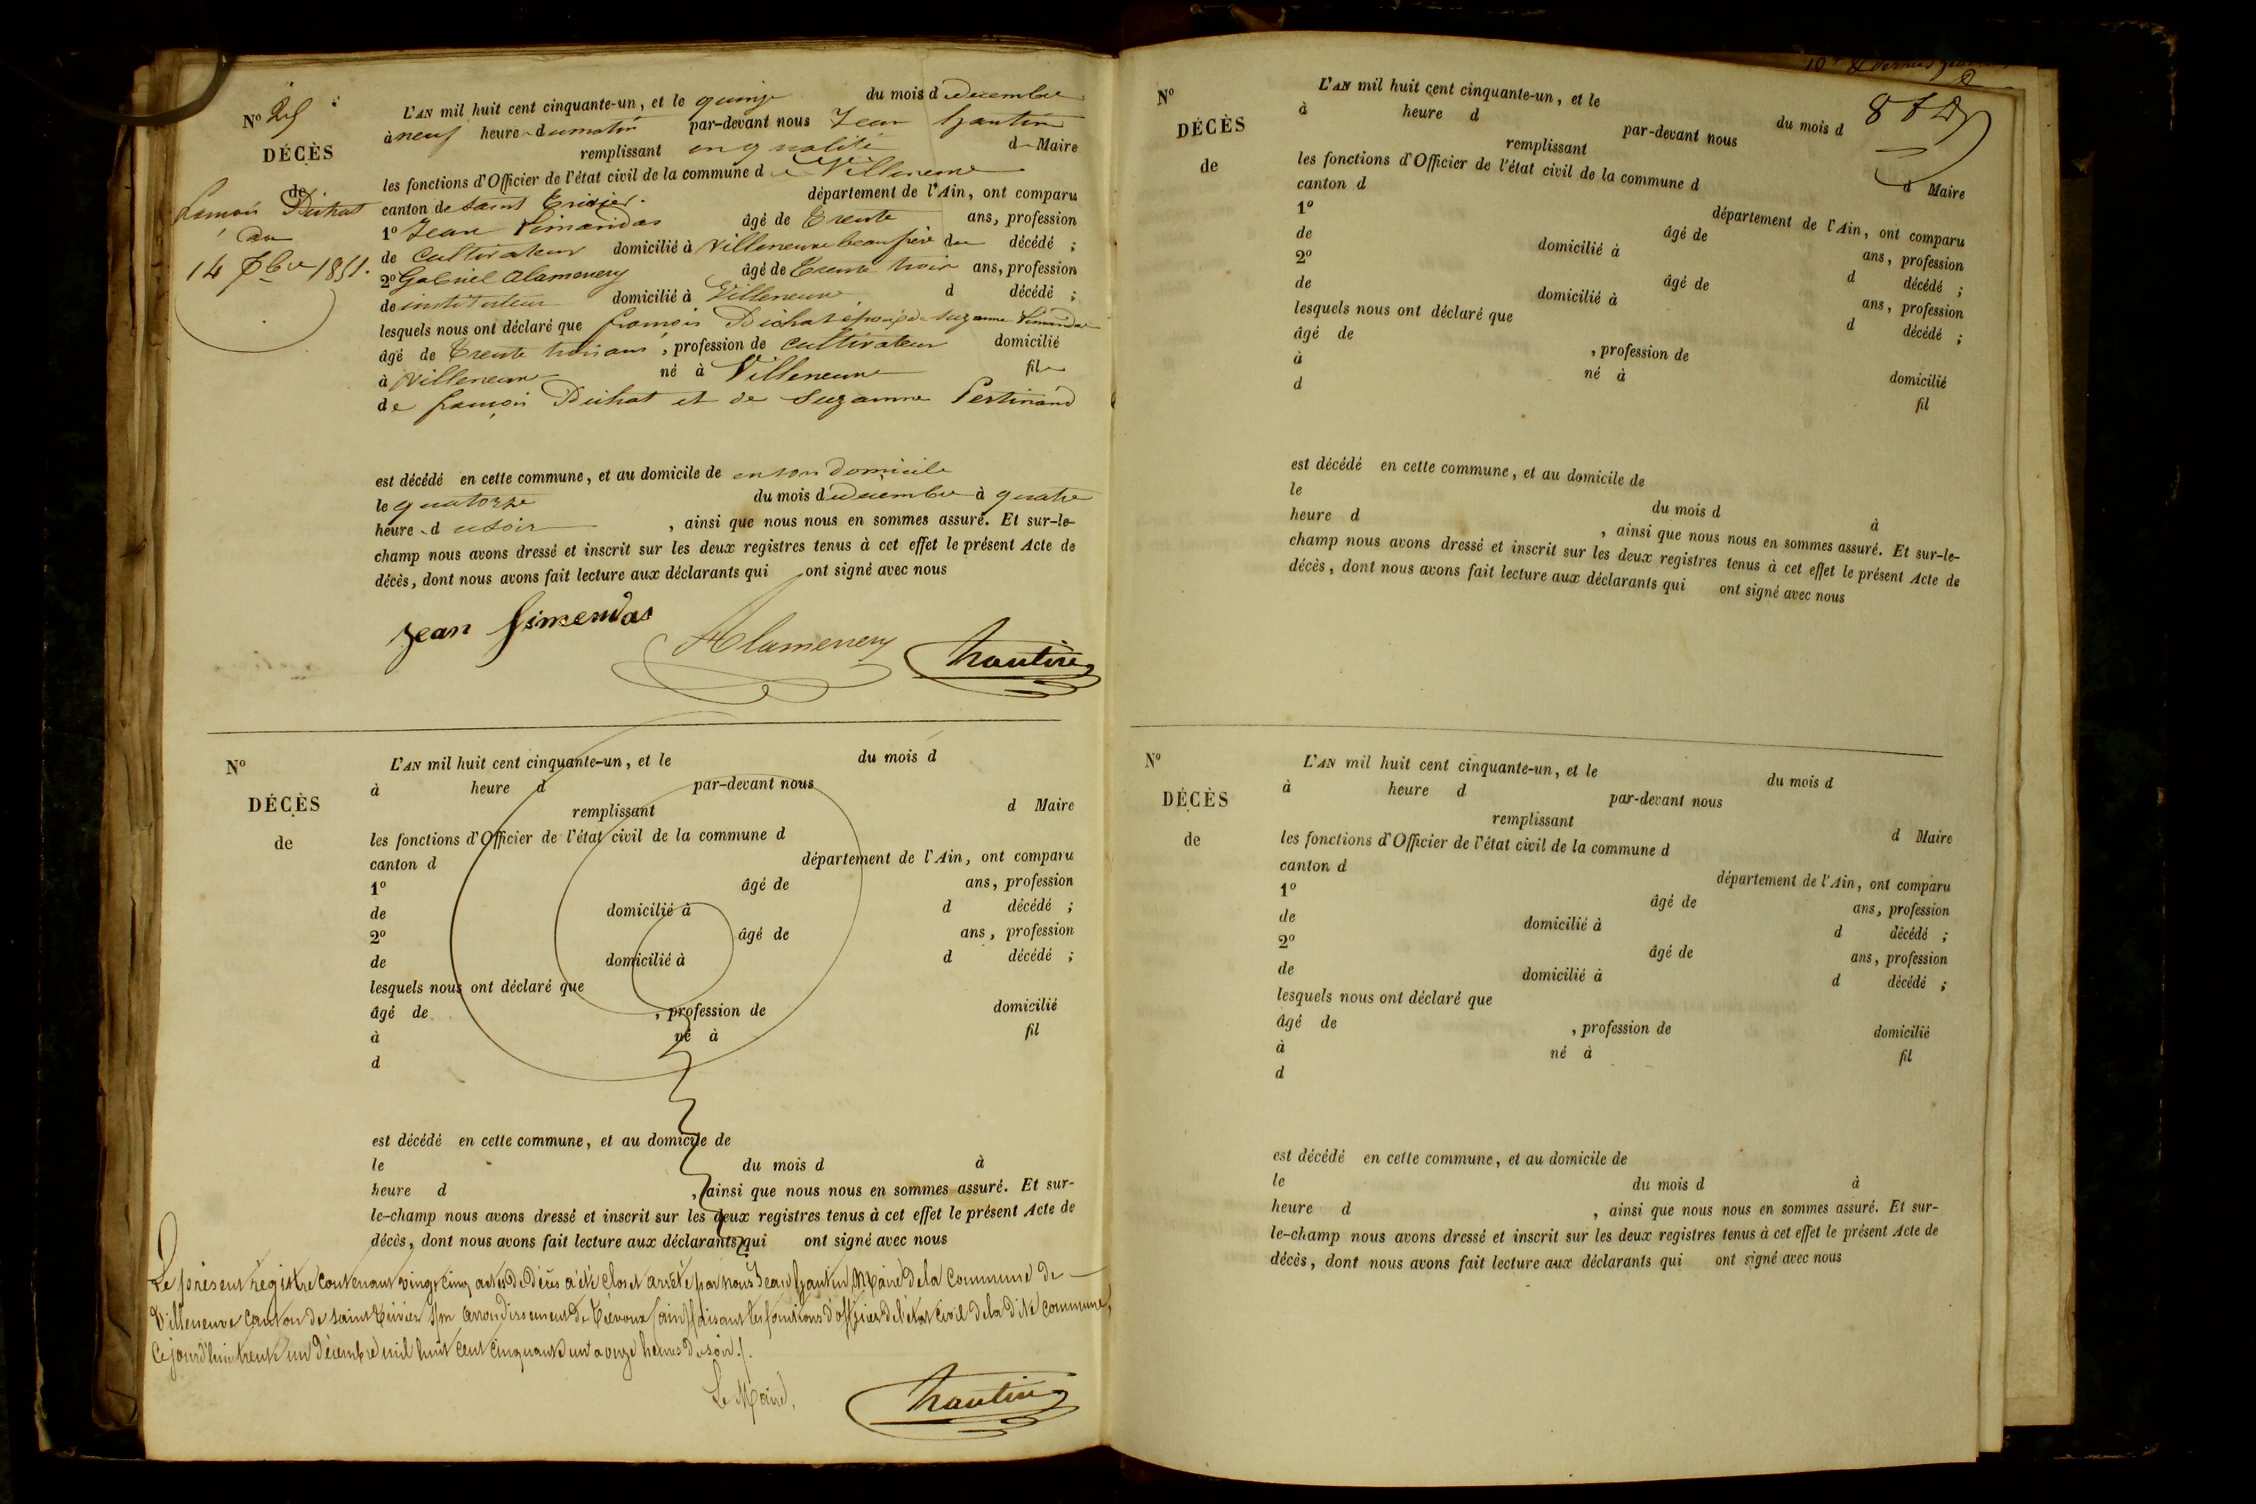 No 25
DÉCÈS
de
françois Dichat
du
14 Xbre 1851.
L'AN mil huit cent cinquante-un, et le quinze du mois de décembre
à neuf heure du matin par-devant nous Jean hantin
remplissant en qualité de Maire
les fonctions d'Officier de l'état civil de la commune de Villeneuve
canton de Saint Trivier. département de l'Ain, ont comparu
1o Jean Simandas âgé de trente ans, profession
de Cultivateur domicilié à Villeneuve beau frère du décédé ;
2o Gabriel Alamenery âgé de trente trois ans, profession
de instituteur domicilié à Villeneuve d décédé ;
lesquels nous ont déclaré que françois Dichat époux de Suzanne Simandas
âgé de trente trois ans, profession de cultivateur domicilié
à Villeneuve né à Villeneuve fils
de françois Dichat et de Suzanne Pertinand
est décédé en cette commune, et au domicile de en son domicile
le quatorze du mois de décembre à quatre
heure du soir, ainsi que nous nous en sommes assuré. Et sur-le-
champ nous avons dressé et inscrit sur les deux registres tenus à cet effet le présent Acte de
décès, dont nous avons fait lecture aux déclarants qui ont signé avec nous
Jean Simendas
Alamenery hantin
No
DÉCÈS
de
L'AN mil huit cent cinquante-un, et le du mois d
à heure d par-devant nous
remplissant d Maire
les fonctions d'Officier de l'état civil de la commune d
canton d département de l'Ain, ont comparu
1o âgé de ans, profession
de domicilié à d décédé ;
2o âgé de ans, profession
de domicilié à d décédé ;
lesquels nous ont déclaré que
âgé de , profession de domicilié
à né à fil
d
est décédé en cette commune, et au domicile de
le du mois d à
heure d , ainsi que nous nous en sommes assuré. Et sur-
le-champ nous avons dressé et inscrit sur les deux registres tenus à cet effet le présent Acte de
décès, dont nous avons fait lecture aux déclarants qui ont signé avec nous
Le présent registre contenant vingt cinq actes de Décès a été clos et arrêté par nous Jean hantin Maire de la Commune de
Villeneuve canton de Saint Trivier s/m arrondissement de Trévoux (ain) faisant les fonctions d'officier de l'état civil de la dite commune,
Ce jourd'hui trente un Décembre mil huit cent cinquante un a onze heures du soir ./.
Le Maire,
hantin
No
DÉCÈS
de
L'AN mil huit cent cinquante-un, et le du mois d
à heure d par-devant nous
remplissant d Maire
les fonctions d'Officier de l'état civil de la commune d
canton d département de l'Ain, ont comparu
1o âgé de ans, profession
de domicilié à d décédé ;
2o âgé de ans, profession
de domicilié à d décédé ;
lesquels nous ont déclaré que
âgé de , profession de domicilié
à né à fil
d
est décédé en cette commune, et au domicile de
le du mois d à
heure d , ainsi que nous nous en sommes assuré. Et sur-le-
champ nous avons dressé et inscrit sur les deux registres tenus à cet effet le présent Acte de
décès, dont nous avons fait lecture aux déclarants qui ont signé avec nous
No
DÉCÈS
de
L'AN mil huit cent cinquante-un, et le du mois d
à heure d par-devant nous
remplissant d Maire
les fonctions d'Officier de l'état civil de la commune d
canton d département de l'Ain, ont comparu
1o âgé de ans, profession
de domicilié à d décédé ;
2o âgé de ans, profession
de domicilié à d décédé ;
lesquels nous ont déclaré que
âgé de , profession de domicilié
à né à fil
d
est décédé en cette commune, et au domicile de
le du mois d à
heure d , ainsi que nous nous en sommes assuré. Et sur-
le-champ nous avons dressé et inscrit sur les deux registres tenus à cet effet le présent Acte de
décès, dont nous avons fait lecture aux déclarants qui ont signé avec nous